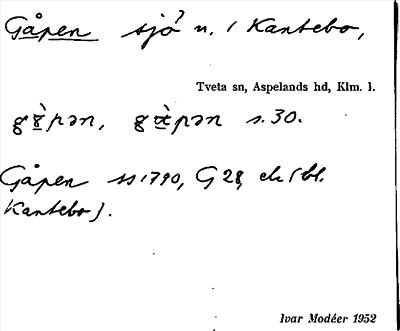 Gåpen sjö? n. / Kantebo,
Tveta sn, Aspelands hd, Klm. l.
gɑ̀pən, gæ̀pən s. 30.
Gåpen ss 1790, G 28, ek (bl.
Kantebo).
Ivar Modéer 1952